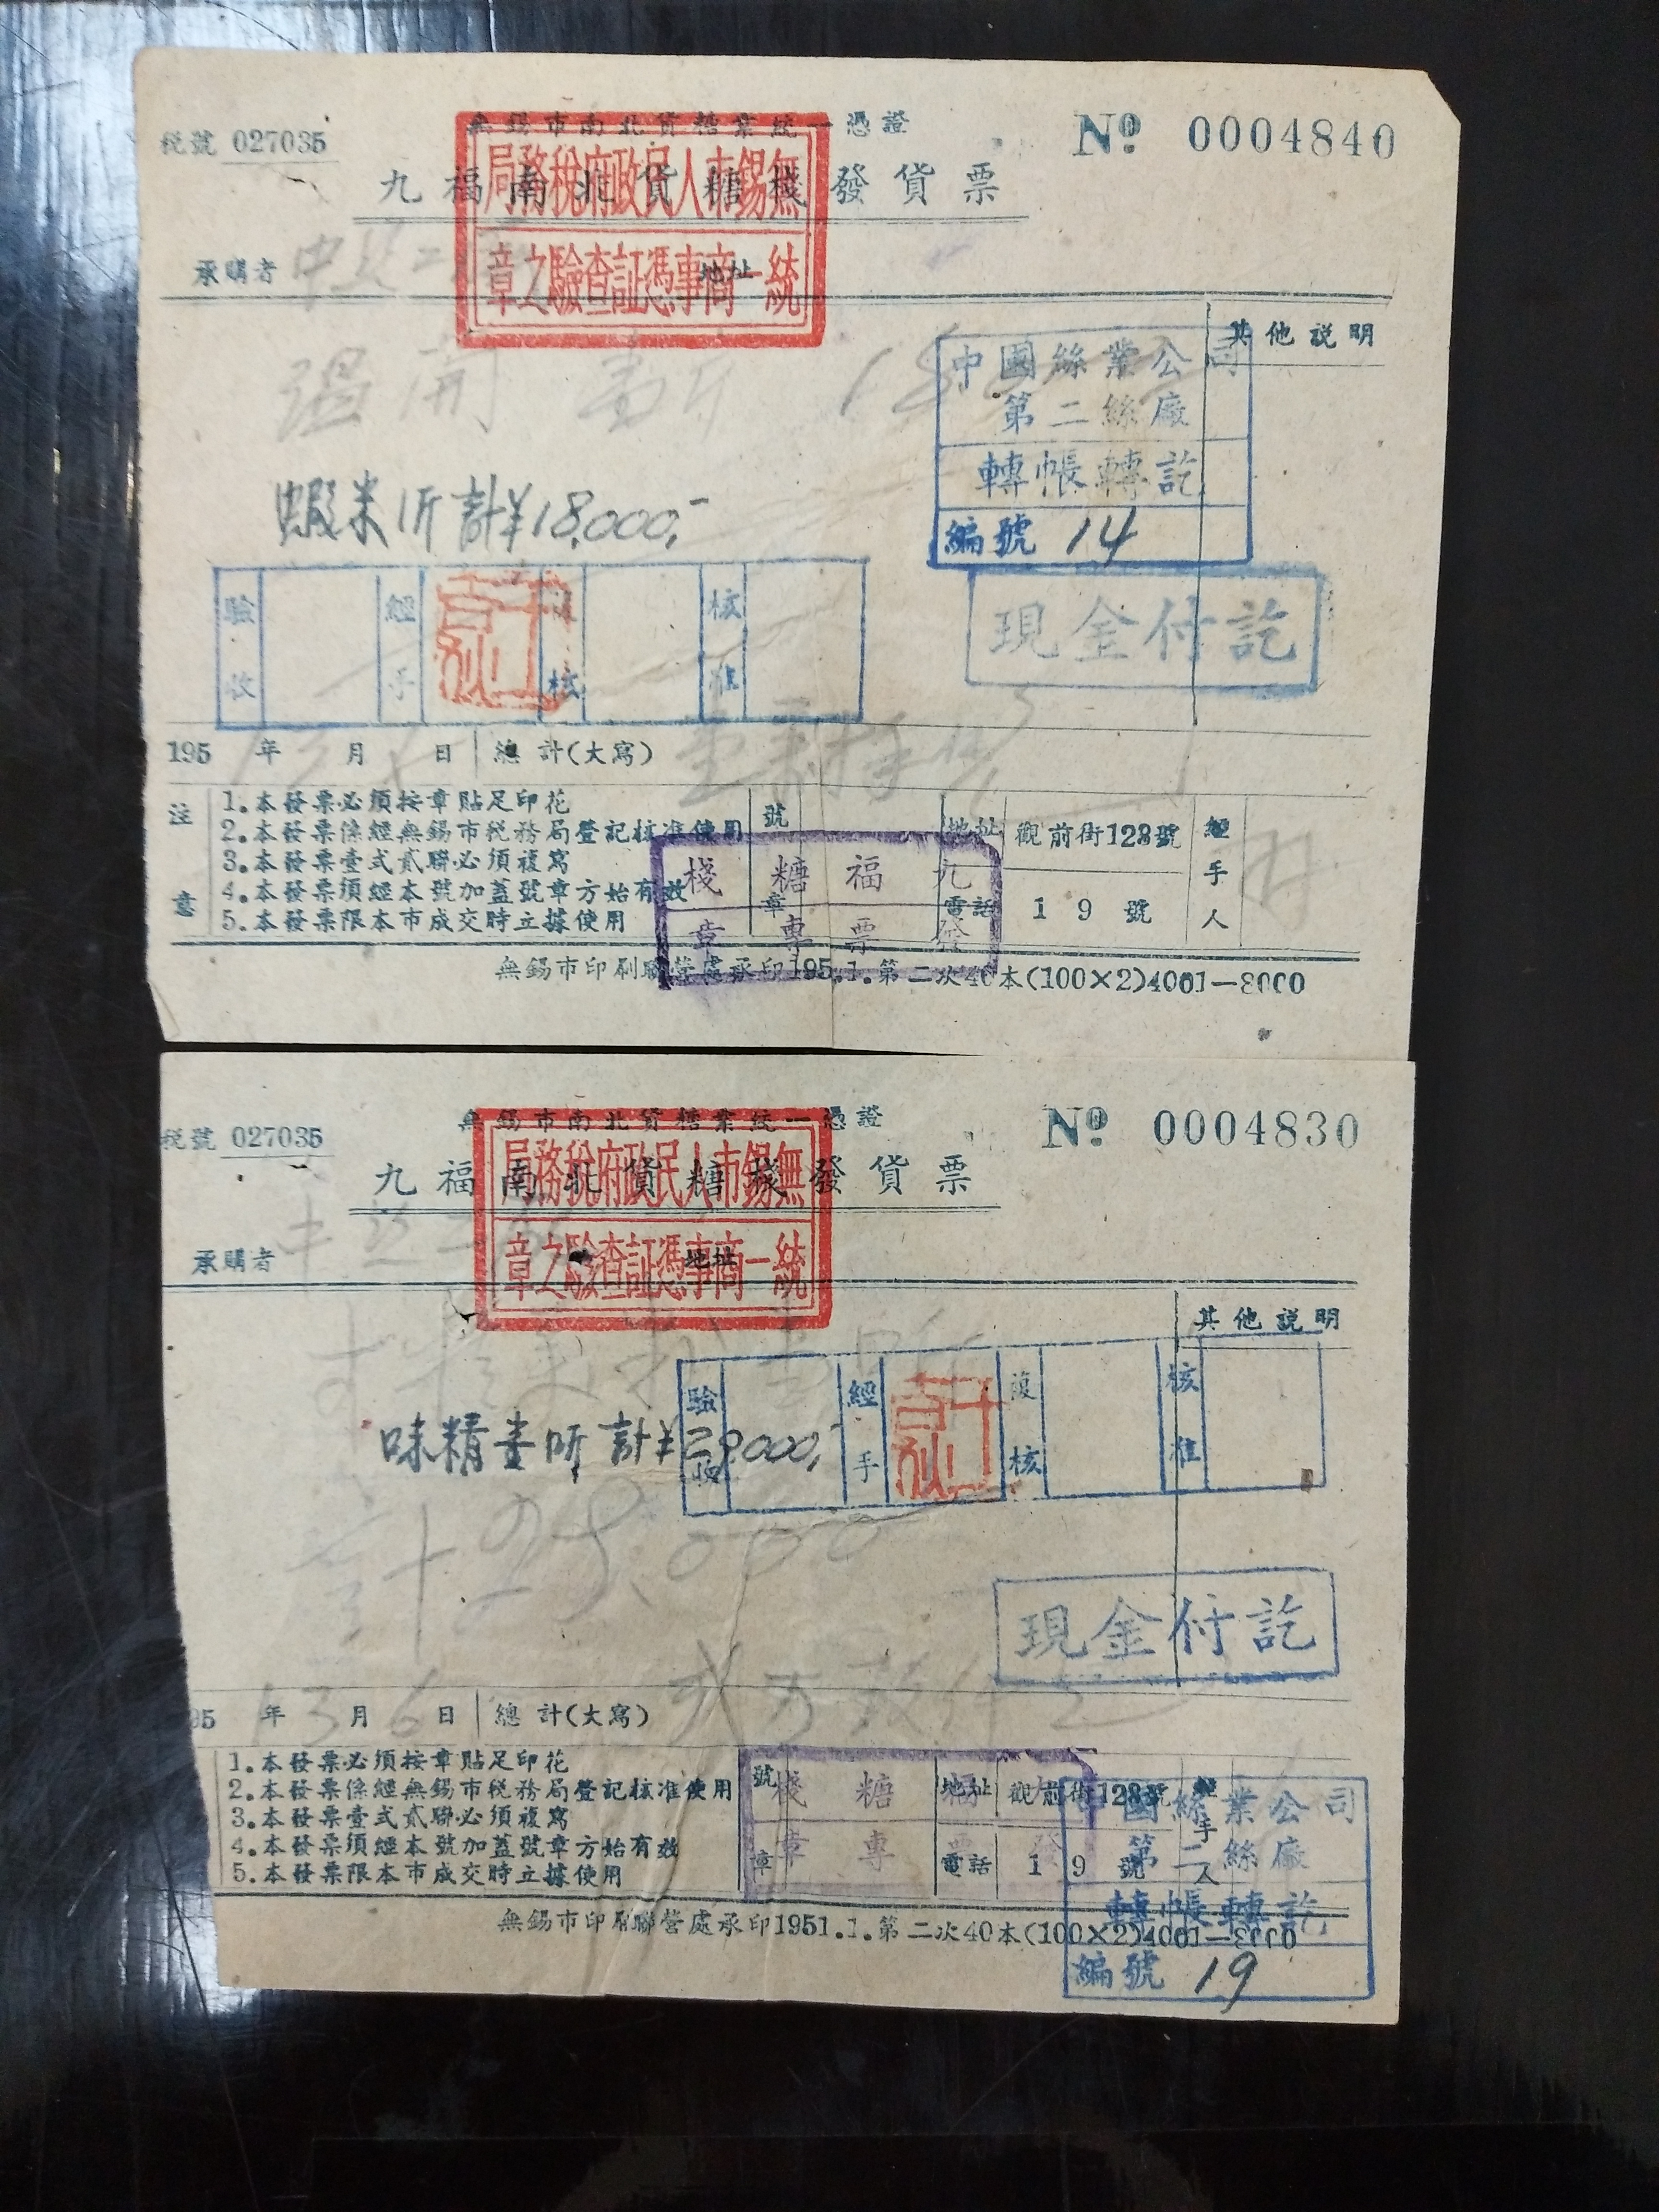 稅號 027035
無錫市南北貨糖業統一憑證
№ 0004840
九福南北貨糖棧發貨票
無錫市人民政府稅務局
統一商事憑証查驗之章
承購者 中 二
地址
其他説明
開 壹斤 18
中國絲業公司
第二絲廠
轉帳轉訖
編號 14
蝦米1斤計¥18,000,-
現金付訖
驗收 經手 復核 核准
195 年 月 日 總計(大寫)
注意
1.本發票必須按章貼足印花
2.本發票係經無錫市稅務局登記核准使用
3.本發票壹式貳聯必須複寫
4.本發票須經本號加蓋號章方始有效
5.本發票限本市成交時立據使用
號章
九福糖棧
發票專章
地址 觀前街128號
電話 19號
經手人
無錫市印刷聯營處承印195.1.第二次40本(100×2)4001—8000
稅號 027035
無錫市南北貨糖業統一憑證
№ 0004830
九福南北貨糖棧發貨票
無錫市人民政府稅務局
統一商事憑証查驗之章
承購者 中
地址
其他説明
驗收 經手 復核 核准
味精壹听計¥29,000,-
計 29,000
現金付訖
95 1 年 3 月 6 日 總計(大寫)
1.本發票必須按章貼足印花
2.本發票係經無錫市稅務局登記核准使用
3.本發票壹式貳聯必須複寫
4.本發票須經本號加蓋號章方始有效
5.本發票限本市成交時立據使用
號章
福糖棧
發票專章
地址 觀前街128號
電話 19號
經手人
中國絲業公司
第二絲廠
轉帳轉訖
編號 19
無錫市印刷聯營處承印1951.1.第二次40本(100×2)4001—8000